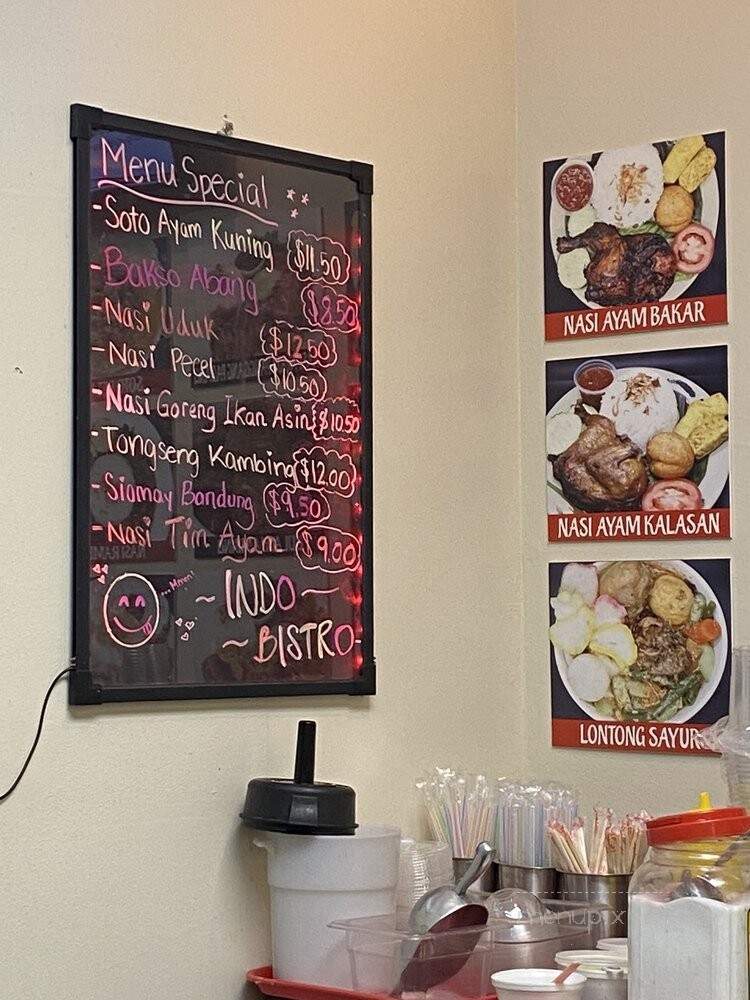 Menu Special
- Soto Ayam Kuning $11.50
- Bakso Abang $8.50
- Nasi Uduk $12.50
- Nasi Pecel $10.50
- Nasi Goreng Ikan Asin $10.50
- Tongseng Kambing $12.00
- Siomay Bandung $9.50
- Nasi Tim Ayam $9.00
...Mmm!
~ INDO ~
~ BISTRO -
NASI AYAM BAKAR
NASI AYAM KALASAN
LONTONG SAYUR
menupix